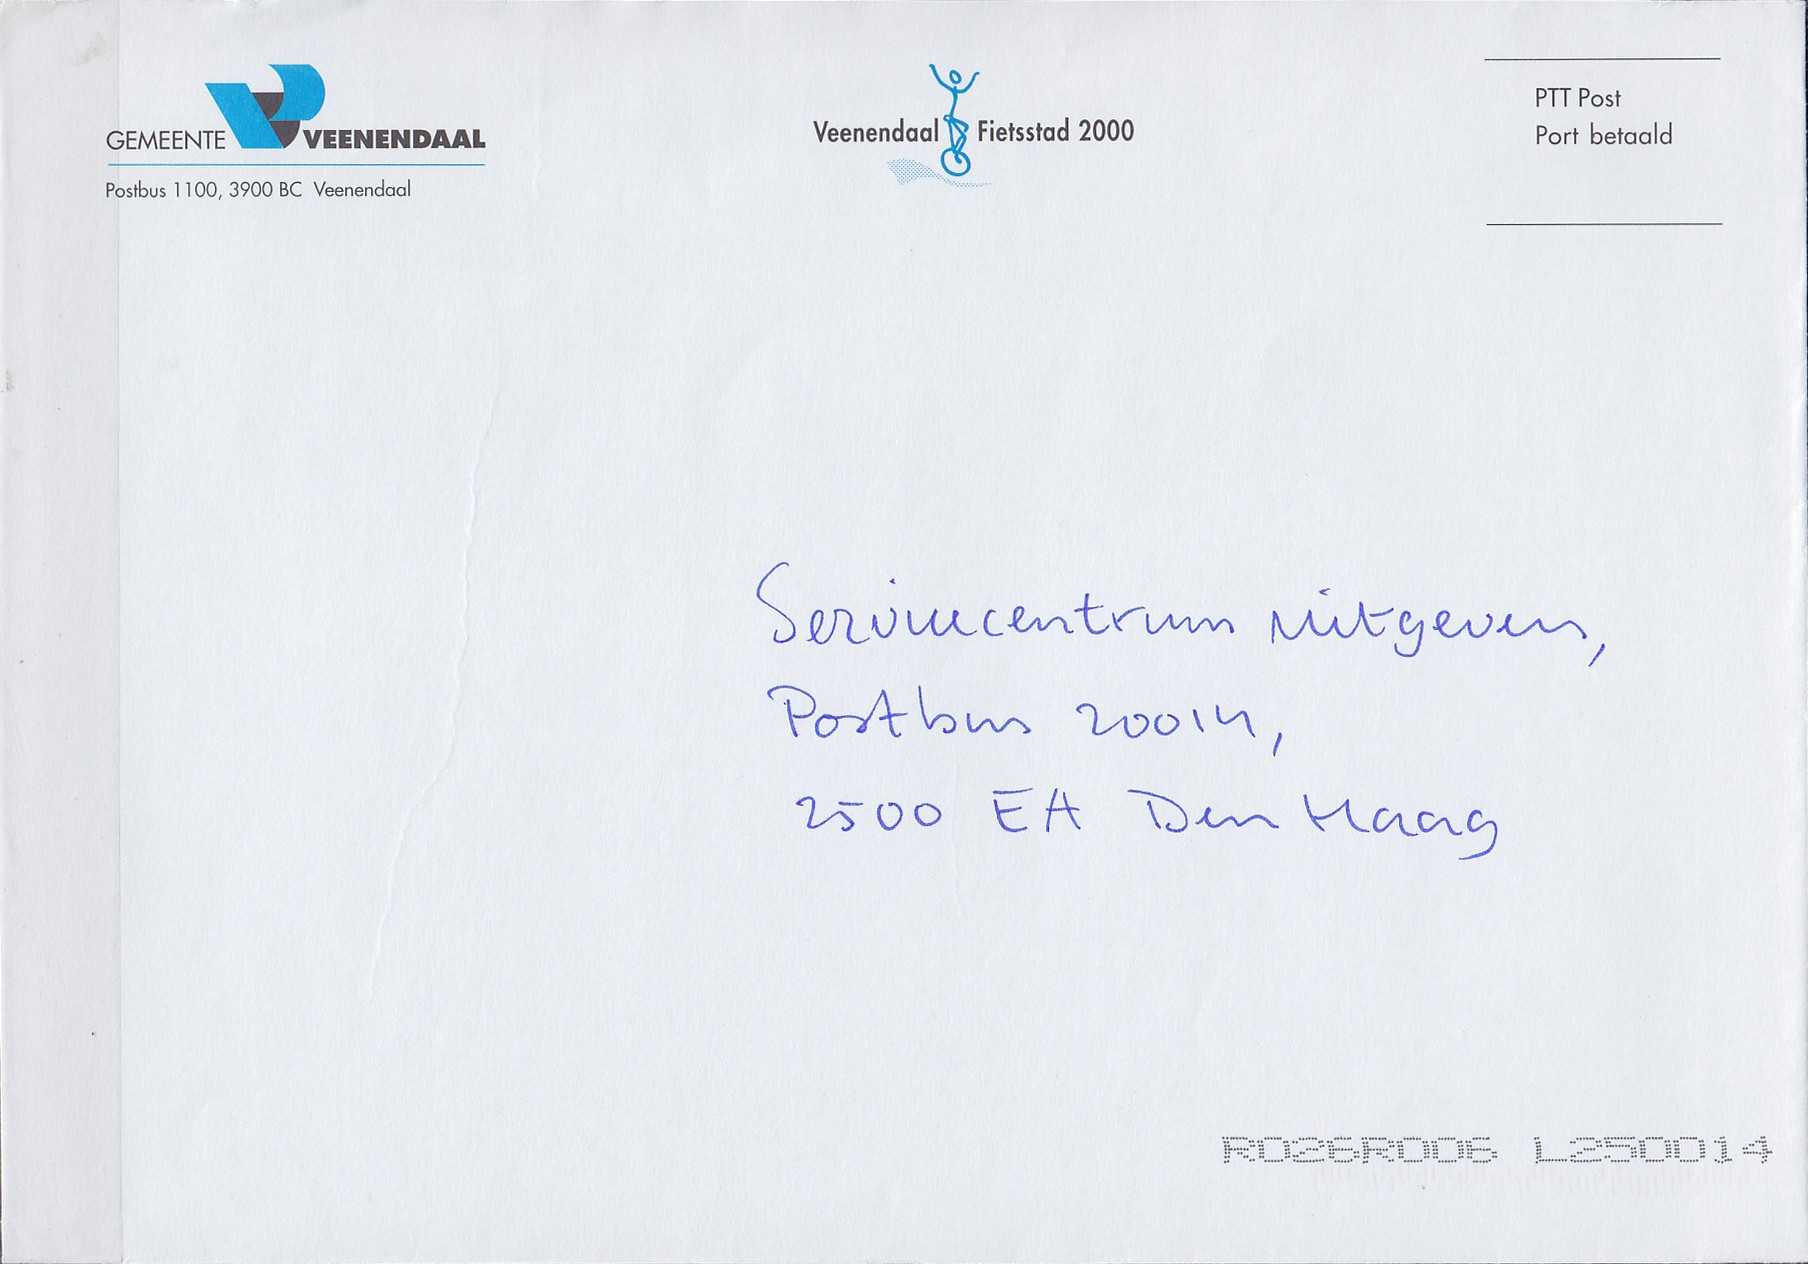 GEMEENTE VEENENDAAL
Postbus 1100, 3900 BC Veenendaal
Veenendaal Fietsstad 2000
PTT Post
Port betaald
Servicecentrum Uitgevers,
Postbus 20014,
2500 EA Den Haag
R026R006 L250014